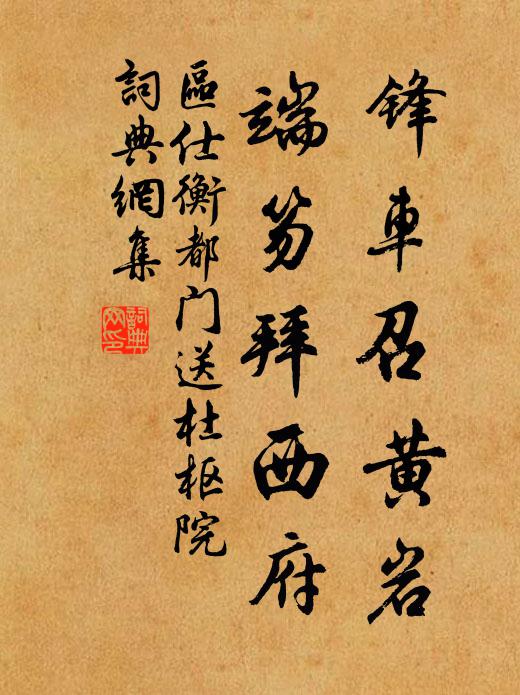 锋车召黄岩
端笏拜西府
區仕衡都门送杜枢院
詞典網集
詞典网印